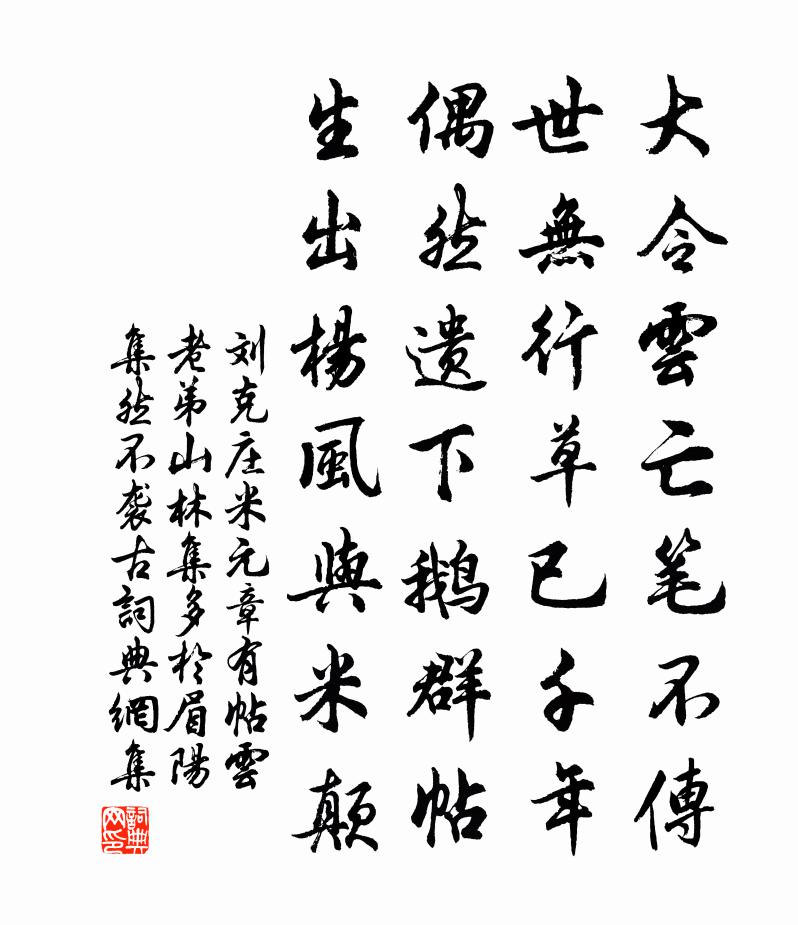 大令雲亡笔不傳
世無行草已千年
偶然遗下鹅群帖
生出楊風與米顛
刘克庄米元章有帖雲
老弟山林集多於眉陽
集然不袭古詞典網集
詞典网印